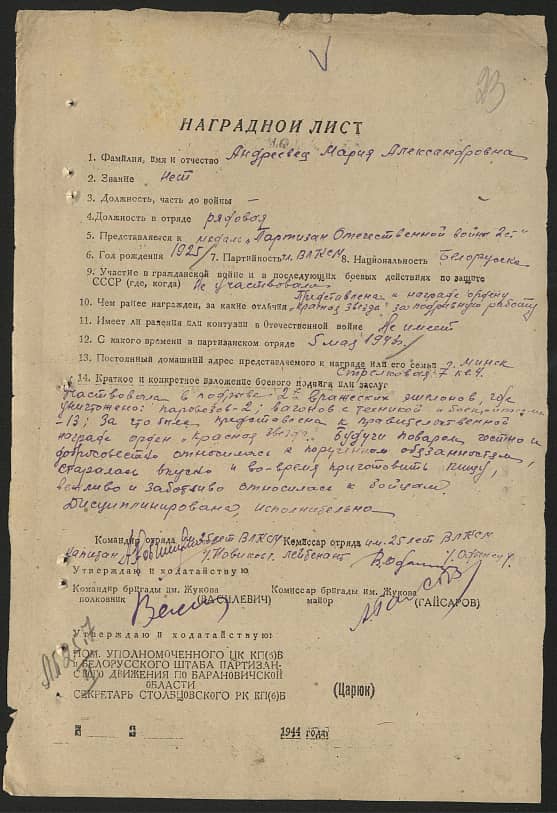 23
НАГРАДНОЙ ЛИСТ
1. Фамилия, имя и отчество Андресвец Мария Александровна
2. Звание нет
3. Должность, часть до войны –
4. Должность в отряде рядовая
5. Представляется к медаль "Партизан Отечественной войны 2 ст"
6. Год рождения 1925 7. Партийность чл. ВЛКСМ 8. Национальность Белоруска
9. Участие в гражданской войне и в последующих боевых действиях по защите
СССР (где, когда) Не участвовала
10. Чем ранее награжден, за какие отличия Представлена к награде ордену
"Красная Звезда" за подрывную работу
11. Имеет ли ранения или контузии в Отечественной войне Не имеет
12. С какого времени в партизанском отряде 5 мая 1943
13. Постоянный домашний адрес представляемого к награде или его семьи г. Минск
Стрелковая 7 кв 4.
14. Краткое и конкретное изложение боевого подвига или заслуг
Участвовала в подрыве 2х вражеских эшелонов, где
уничтожено: паровозов-2; вагонов с техникой и
-13; За что была представлена к правительственной
награде орден "Красная Звезда". Будучи поваром честно и
добросовестно относилась к порученным обязанностям,
старалась вкусно и во-время приготовить пищу,
вежливо и заботливо относилась к бойцам.
Дисциплинирована, исполнительна
Командир отряда им. 25 лет ВЛКСМ Комиссар отряда им. 25 лет ВЛКСМ
капитан /Новиков/ лейтенант
Утверждаю и ходатайствую:
Командир бригады им. Жукова Комиссар бригады им. Жукова
полковник (ВАСИЛЕВИЧ) майор (ГАЙСАРОВ)
Утверждаю и ходатайствую:
ПОМ. УПОЛНОМОЧЕННОГО ЦК КП(б)Б
И БЕЛОРУССКОГО ШТАБА ПАРТИЗАН-
СКОГО ДВИЖЕНИЯ ПО БАРАНОВИЧСКОЙ
ОБЛАСТИ
СЕКРЕТАРЬ СТОЛБЦОВСКОГО РК КП(б)Б (Царюк)
1944 года